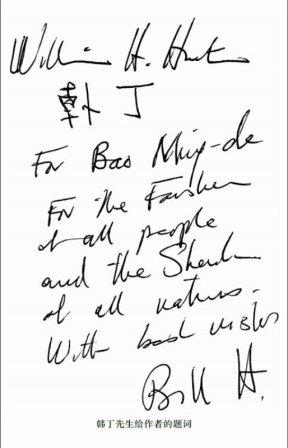 William H. Hinton
韩丁
For Bao Ming-de
For the Fanshen
of all people
and the Shenfan
of all nations.
With best wishes
Bill H.
韩丁先生给作者的题词